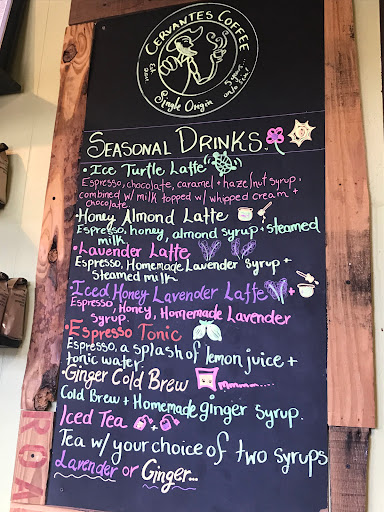 CERVANTES COFFEE
Single Origin
SEASONAL DRINKS
• Ice Turtle Latte
Espresso, chocolate, caramel + hazelnut syrup.
combined w/ milk topped w/ whipped cream +
chocolate.
• Honey Almond Latte
Espresso, honey, almond syrup + steamed
milk
• Lavender Latte
Espresso, Homemade Lavender Syrup +
steamed milk
• Iced Honey Lavender Latte
Espresso, Honey, Homemade Lavender
syrup.
• Espresso Tonic
Espresso a splash of lemon juice +
tonic water
• Ginger Cold Brew mmmm....
Cold Brew + Homemade ginger syrup.
Iced Tea
Tea w/ your choice of two syrups
Lavender or Ginger...
ROA